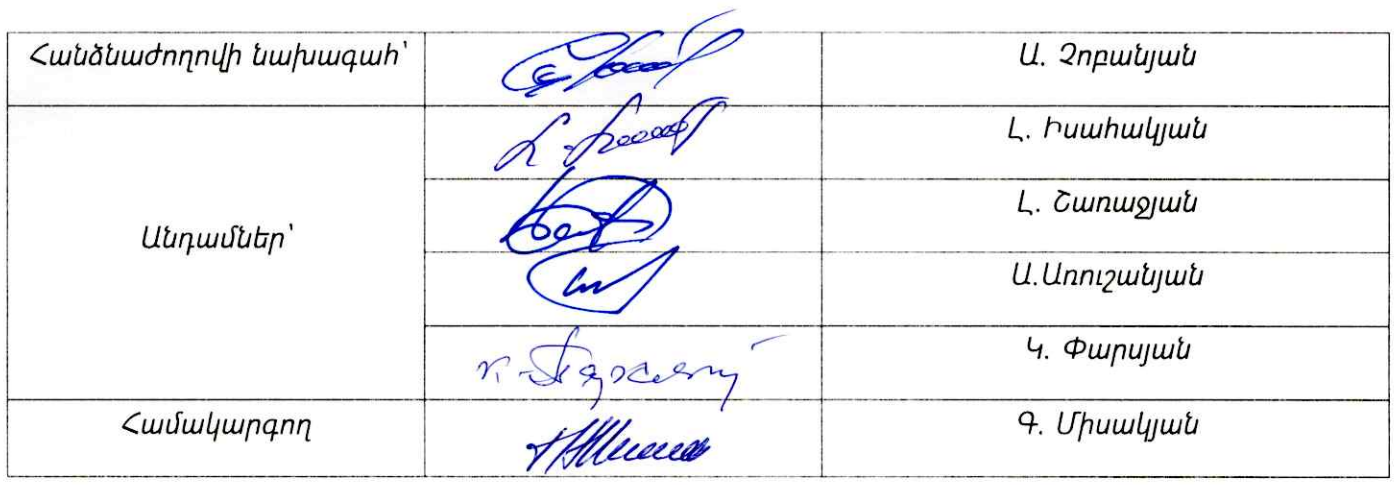 Հանձնաժողովի նախագահ՝ Ա. Չոբանյան
Լ. Իսահակյան
Լ. Շառաջյան
Անդամներ՝
Ա.Առուշանյան
Կ. Փարսյան
Համակարգող Գ. Միսակյան